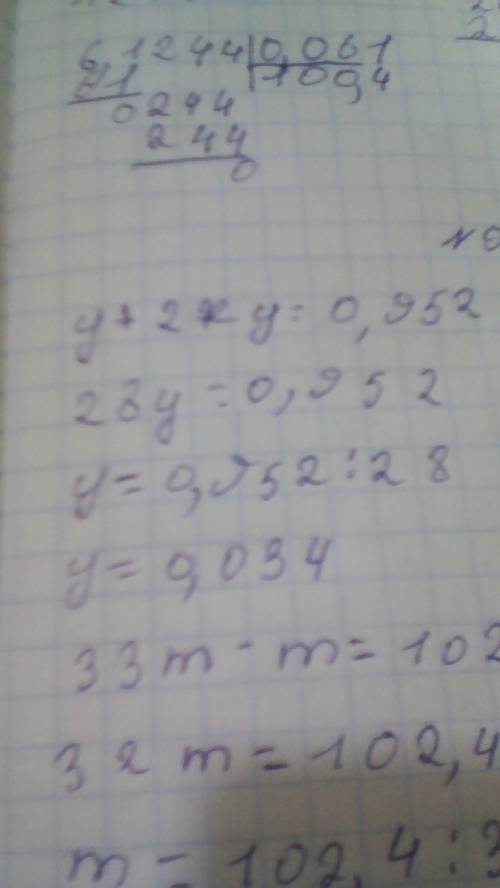 61244|0,061
61 |100,4
0244
244
0
y + 27y = 0,952
28y = 0,952
y = 0,952 : 28
y = 0,034
33m - m = 102
32m = 102,4
m = 102,4 : 3